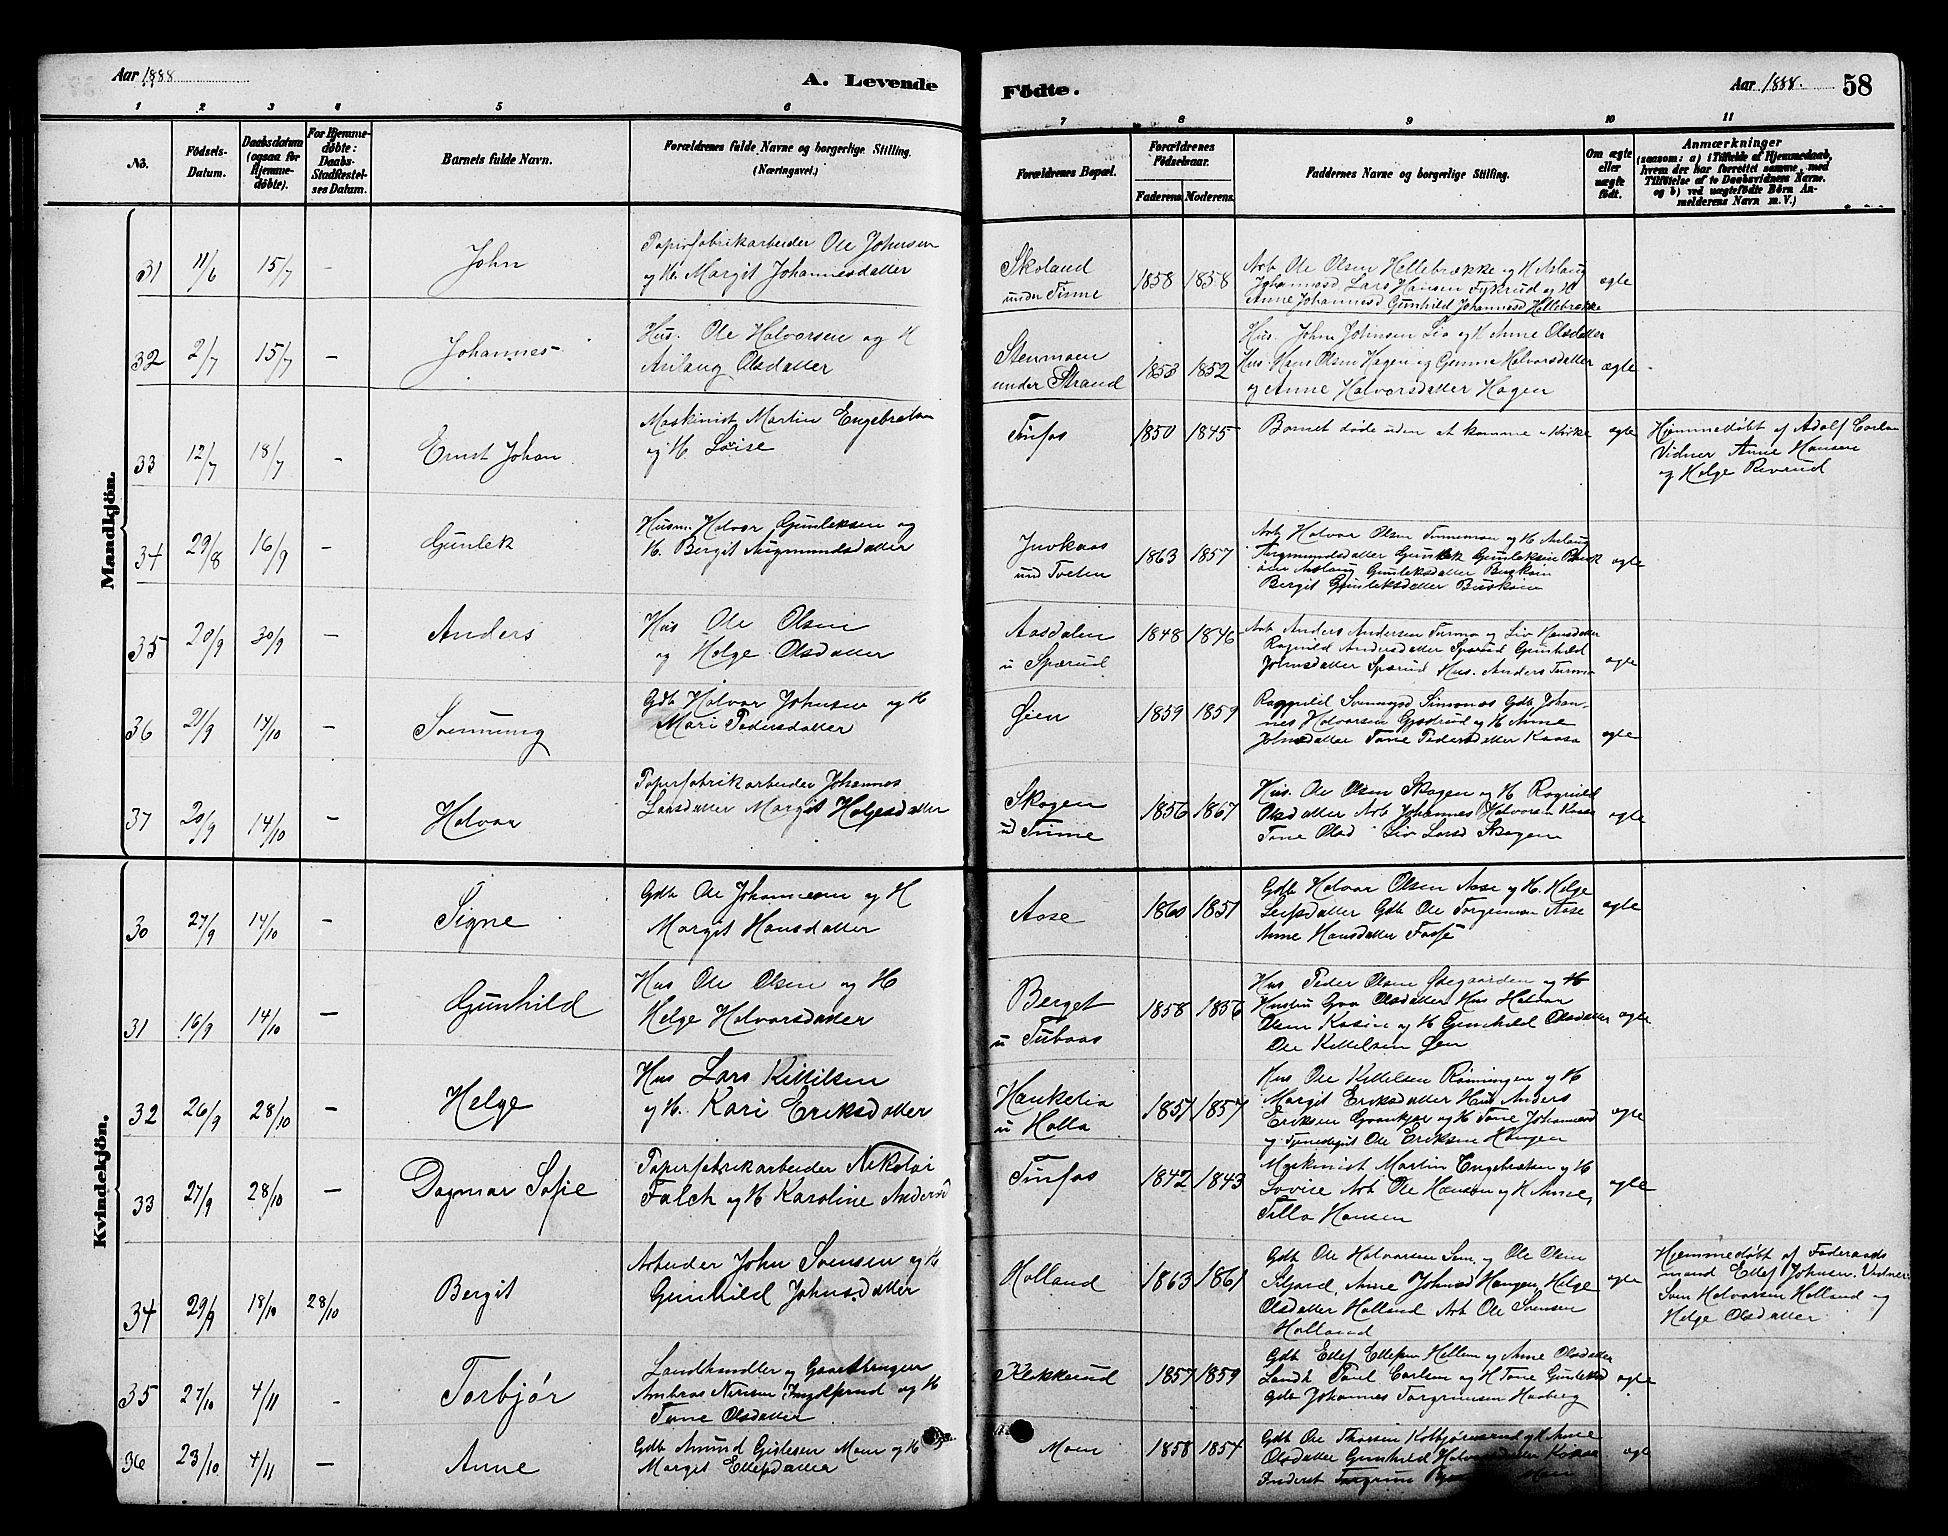 Aar 1888
A. Levende
Födte.
Aar 1888.
58
1 2 3 4 5 6
7 8 9 10 11
No.
Födsels-Datum.
Daabsdatum (ogsaa for Hjemme-döbte).
For Hjemme-döbte: Daabs-Stadfæstel-ses Datum.
Barnets fulde Navn.
Forældrenes fulde Navne og borgerlige Stilling.
(Næringsvei.)
Forældrenes Bopæl.
Forældrenes Födselsaar.
Faderens. Moderens.
Faddernes Navne og borgerlige Stilling.
Om ægte eller uægte födt.
Anmærkninger
(saasom: a) i Tilfælde af Hjemmedaab, hvem der har forrettet samme, med Tilföielse af to Daabsvidners Navne, og b) ved uægtefödte Börn An-melderens Navn m. V.)
Mandkjön.
31 11/6 15/7 - John
Papirfabrikarbeider Ole Johnsen
og H. Margit Johannesdatter
Skoland
under Tinne
1858 1858
Arb Ole Olsen Hellebrække og H Aslaug
Johannesd Lars Hansen Tykrud og H
Anne Johannesd Gunhild Johannesd Hellebrække
ægte
32 2/7 15/7 - Johannes
Hus. Ole Halvorsen og H
Aslaug Olsdatter
Stenmoen
under Strand
1853 1852
Hus. John Johnsen Lia og H Anne Olsdatter
Hus. Hans Olsen Hagen og Halvorsdatter
og Anne Halvorsdatter Hagen
ægte
33 12/7 18/7 - Ernst Johan
Maskinist Martin Engebretsen
og H Lovise
Tinfos
1850 1845
Barnet døde uden at komme i Kirke
ægte
Hjemmedøbt af Adolf Carlsen
Vidner Anne Hansen
og Helge
34 29/8 16/9 - Gunlek
Husm. Halvor Gunleksen og
H. Bergit Augmundsdatter
und Tveten
1863 1857
Arb Halvor Olsen og H Aslaug
Augmundsdatter Gunlek Gunleksen
Aslaug Gunleksdatter Buskain
Bergit Gunleksdatter Buskain
ægte
35 20/9 30/9 - Anders
Hus Ole Olsen
og Helge Olsdatter
Aasdalen
u Spærud
1848 1846
Arb Anders Andersen Turmo og Liv Hansdatter
Ragnild Andersdatter Spærud Gunhild
Johnsdatter Spærud Hus. Anders Turmo
ægte
36 21/9 14/10 - Svennung
Gdb Halvor Johnsen og H
Mari Pedersdatter
Øien
1859 1859
Ragnild Svennugsd Simones Gdb Johan-
nes Halvorsen og H Anne
Johnsdatter Tone Pedersdatter Kaasa
ægte
37 20/9 14/10 - Halvor
Papirfabrikarbeider Johannes
Larsdatter Margit Helgesdatter
Skogen
u Tinne
1856 1867
Hus. Ole Olsen Skogen og H Ragnild
Olsdatter Arb Johannes Halvorsen Kaasa
Tone Olsd Liv Larsd Skogen
ægte
Kvindekjön.
30 27/9 14/10 - Signe
Gdb Ole Johannesen og H
Margit Hansdatter
Aase
1860 1851
Gdb Halvor Olsen Aase og H. Helge
Leifsdatter Gdb Ole Torgrimsen Aase
Anne Hansdatter
ægte
31 16/9 14/10 - Gunhild
Hus Ole Olsen og H
Helge Halvorsdatter
Berget
u Tubaas
1858 1856
Hus Peder Olsen Øvegaarden og H
Hustru Gro Olsdatter Hus Halvor
Olsen Kasin og H Gunhild Olsdatter
Ole Kittelsen Øen
ægte
32 26/9 28/10 - Helge
Hus Lars Kittilsen
og H. Kari Eriksdatter
Haukelia
u Holla
1851 1857
Hus Ole Kittelsen Rønningen og H
Margit Eriksdatter Hus Anders
Eriksen og H Tone Johannesd
og Tjenestegut Ole Eriksen Haugen
ægte
33 27/9 28/10 - Dagmar Sofie
Papirfabrikarbeider Nikolai
Falch og H Karoline Andersd
Tinfos
1842 1843
Maskinist Martin Engebretsen og H
Lovise Arb Ole Hansen og H Anne,
Tilla Hansen
ægte
34 29/9 18/10 28/10 Bergit
Arbeider John Svensen og H
Gunhild Johnsdatter
Holland
1863 1861
Gdb Ole Halvorsen Sem, og Ole Olsen
Anne Johnsd Haugen, Helge
Olsdatter Holland Arb Ole Svensen
Holland
ægte
Hjemmedøbt af Føderaads
mand Ellef Johnsen. Vidner
Sven Halvorsen Holland og
Helge Olsdatter
35 27/10 4/11 - Torbjør
Landhandler og Gaardbruger
Ambros Nirisen og H
Tone Olsdatter
Klokkerud
1857 1859
Gdb Ellef Ellefsen Hellem og Anne Olsdatter
Landh Poul Carlsen og H Tone Gunleksd
Gdb Johannes Torgrimsen Haaberg
ægte
36 23/10 4/11 - Anne
Gdb Amund Gislesen Moen og H
Margit Ellefsdatter
Moen
1858 1854
Gdb Ole Thorsen og H Anne
Olsdatter Gunhild Halvorsdatter Kaasa
ægte